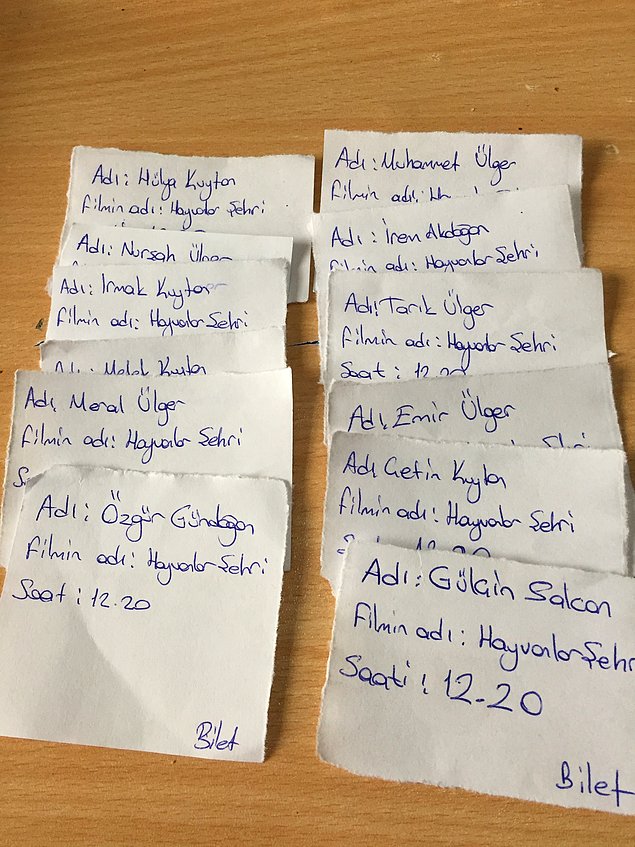 Adı: Hülya Kuyton
Filmin adı: Hayvanlar Şehri
Adı: Nurşah Ülger
Adı: Irmak Kuyton
Filmin adı: Hayvanlar Şehri
Adı: Melek Kuyton
Adı, Meral Ülger
Filmin adı: Hayvanlar Şehri
Adı: Özgür Gündoğan
Filmin adı: Hayvanlar Şehri
Saat: 12.20
Bilet
Adı: Muhammet Ülger
Filmin adı:
Adı: İrem Akdoğan
Filmin adı: Hayvanlar Şehri
Adı: Tarık Ülger
Filmin adı: Hayvanlar Şehri
Saat: 12.20
Adı, Emir Ülger
Adı Çetin Kuyton
Filmin adı: Hayvanlar Şehri
12.20
Adı: Gülçin Salcan
Filmin adı: Hayvanlar Şehri
Saati: 12.20
Bilet